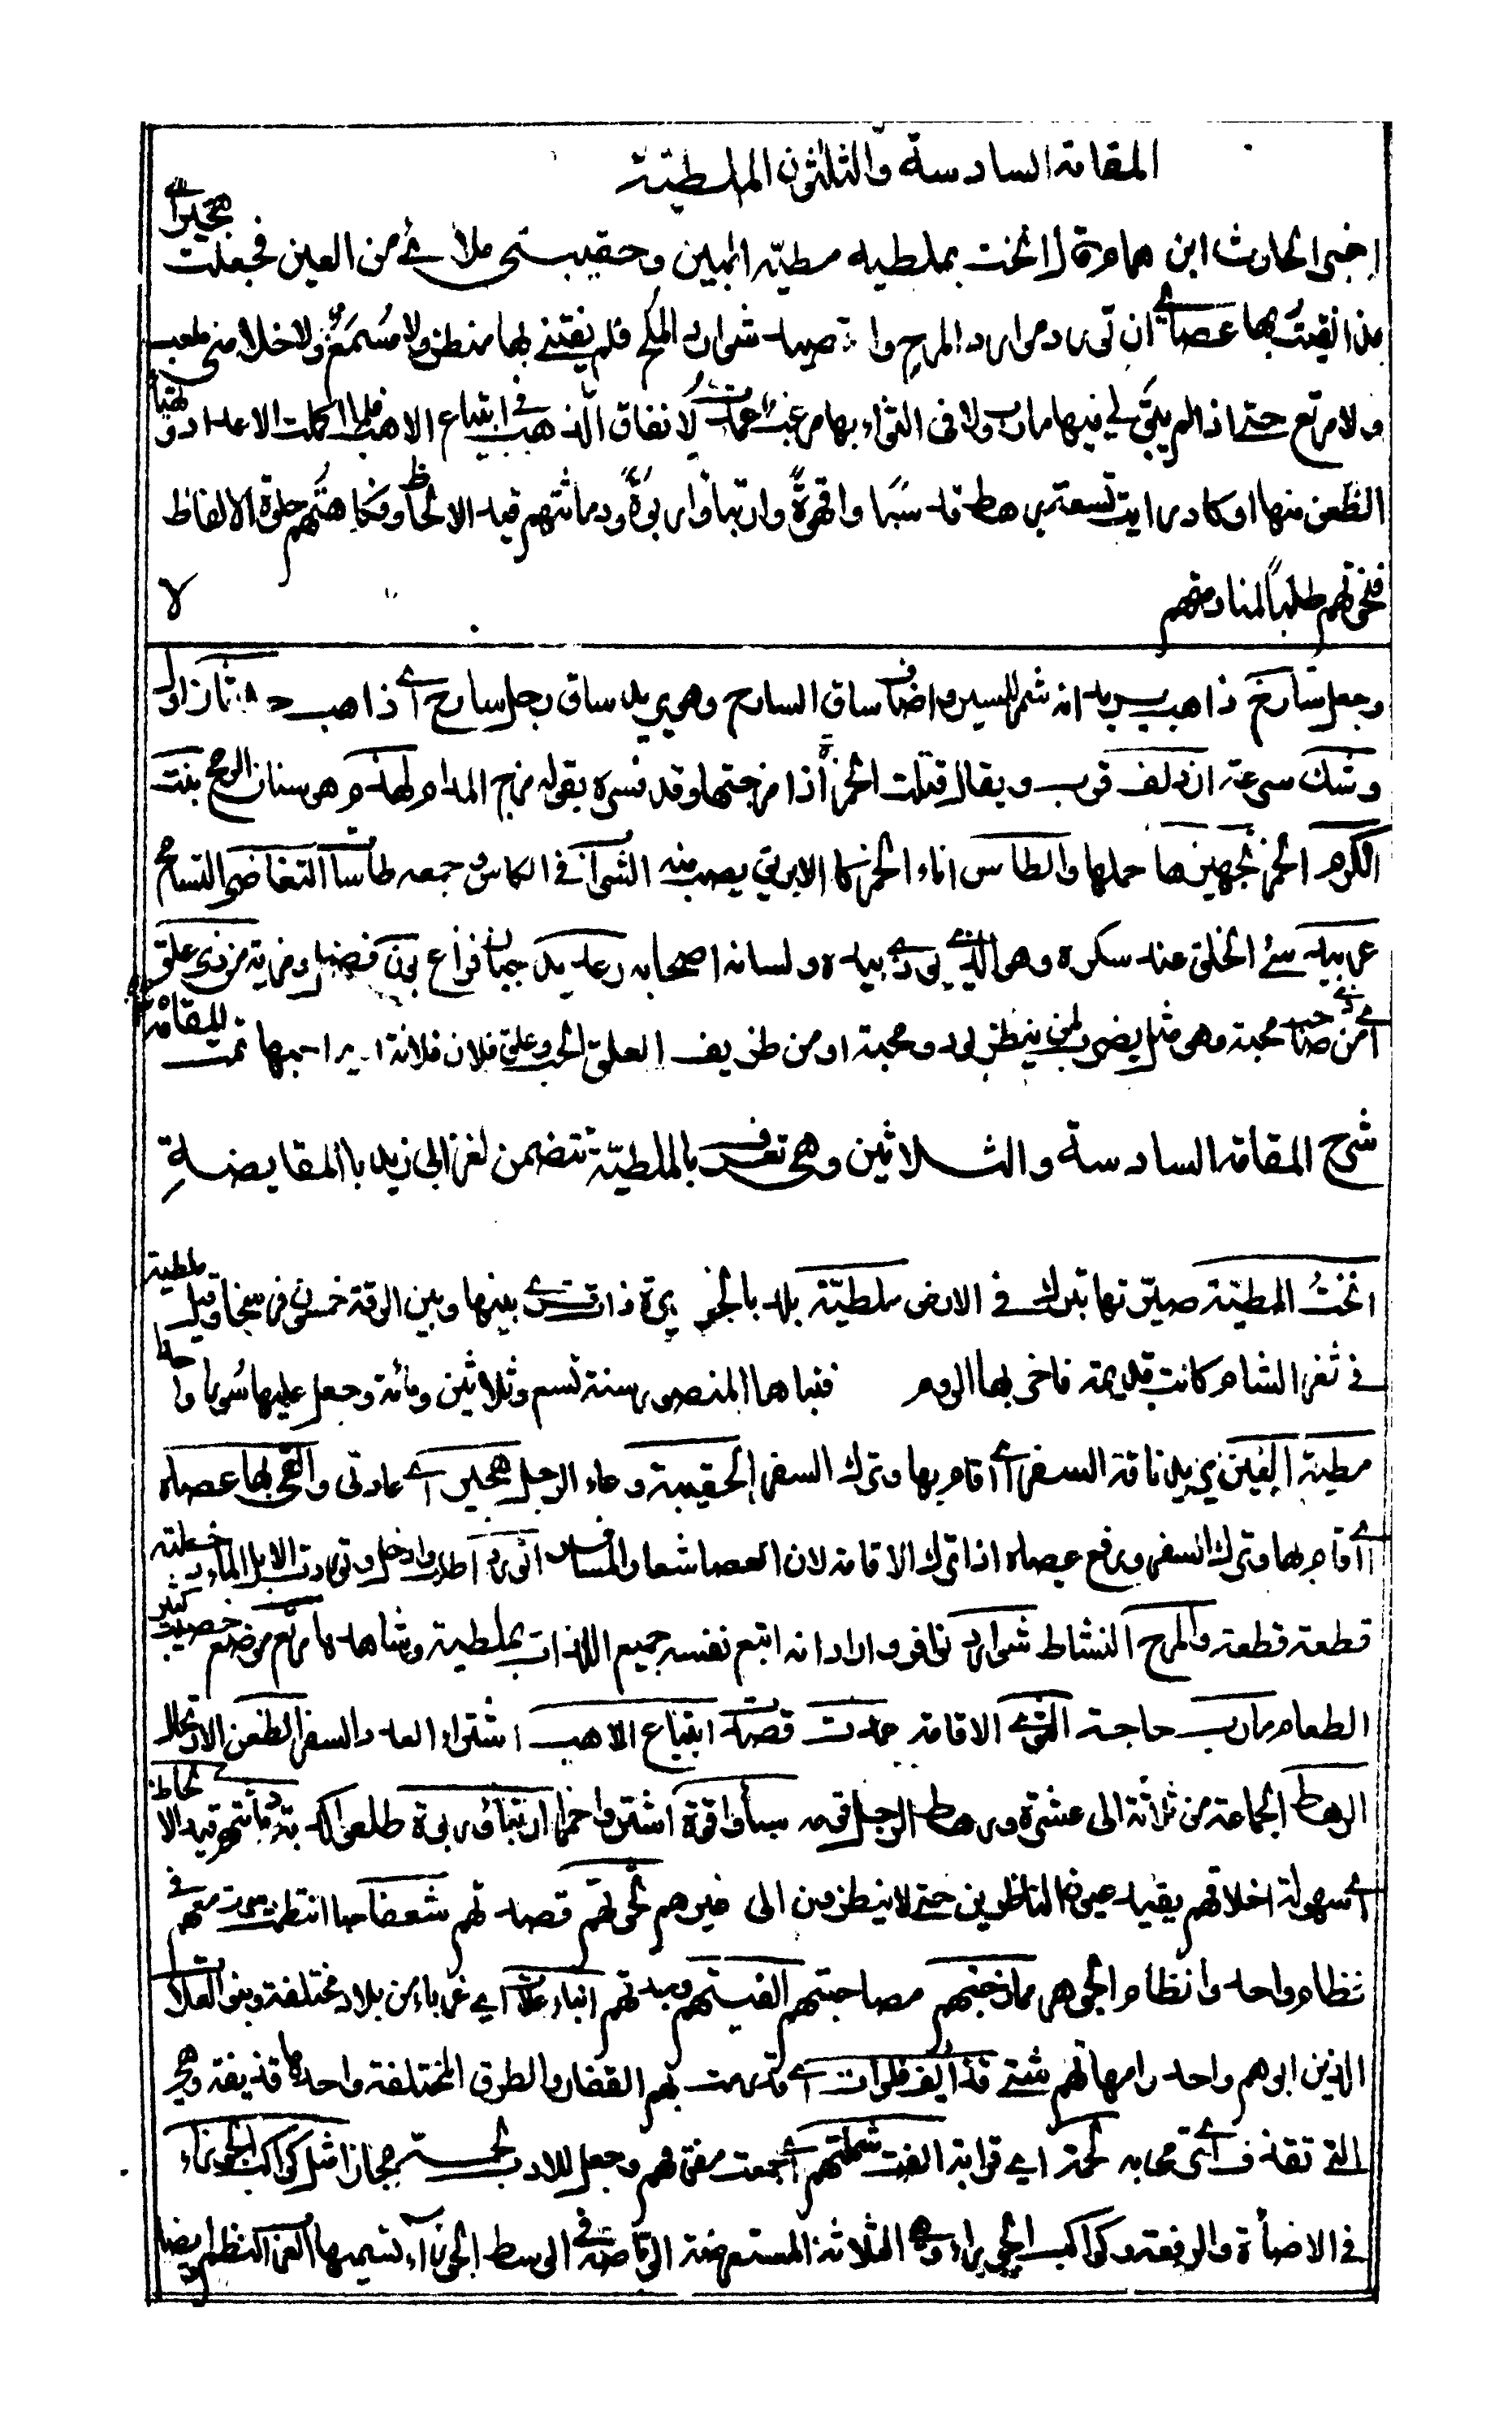 المقامة السادسة والثلثون الملطيّة
اخبر الحارث ابن همام قال انخت بملطيه مطيّة البين وحقيبتى ملأى من العين فجعلت هجيراى
مذ القيت بها عصاى ان تورد موارد المرح وا شوارد الملح فلم يفتنى بها منظر ولا مسمع ولا خلا منى ملعب
ولا مرتع حتى اذا لم يبق لى فيها مأرب ولا فى الثواء بها مرغب عمدت لانفاق الذهب فى ابتياع الاهب فلما اكملت الاعداد وتهيأ
الظعن منها اوكاد رايت تسعة رهط قد سبئوا قهوةً وارتبأوا ربوةً ودماثتهم قيد الالحاظ وفكاهتهم حلوة الالفاظ
فنحوتهم طلبًا لمنادمتهم لا
وجعل سارح ذاهب يريد انه شمر للسير واضاف ساق السارح وهو يريد ساق رجل سارح اى ذاهب
وشك سرعة ازدلف قرب ويقال قتلت الخمرة اذا مزجتها وقد فسره بقوله مزج المدام لهذم وهو سنان الرمح بنت
الكرم الخمر تجهيزها حملها والطاس اناء الخمر كالابريق يصب منه الشراب فى الكاس جمعه طاسات التغاضى التسامح
عربيد سئ الخلق عند سكره وهو الذى يوذى بيده ولسانه اصحابه رعديد جبان فزاع
اى من صاحب محبة وهو مثل يضرب لمن ينظر بود ومحبة او من طريف العلق الحب وعلق فلان فلانة اى احبها تمت المقامة
شرح المقامة السادسة والثلاثين وهى تعرف بالملطيّة تتضمن لغز ابى زيد بالمقايضةِ
انختُ المطيّة صيّرتها تبرك فى الارض ملطيّة بلد بالجزيرة ذات قرى بينها وبين الرقة خمسون فرسخا وقيل ملطية
فى ثغر الشام كانت قديمة فاخربها الروم فبناها المنصور سنة تسع وثلاثين ومائة وجعل عليها سُورًا واحدا
مطية البين يريد ناقة السفر اى اقام بها وترك السفر الحقيبة وعاء الرجل هجيراى اى عادتى والقى بها عصاه
اى اقام بها وترك السفر ورفع عصاه اذا ترك الاقامة لان العصا شعار المسافر اتورد اطلب وادخل وتوردت الابل الماء دخلته
قطعة قطعة والمرح النشاط شوارد نوافر واراد انه اتبع نفسه جميع اللذات بملطية وشاهدها مرتع موضع خصيب كثير
الطعام مارب حاجة الثوى الاقامة عمدت قصدت ابتياع الاهب اشتراء العدد السفر الظعن الارتحال
الرهط الجماعة من ثلاثة الى عشرة ورهط الرجل قومه سبأوا قهوة اشتروا خمرا ارتبأوا ربوة طلعوا اكمة دماثتهم قيد الالحاظ
اى سهولة اخلاقهم يقيد عيون الناظرين حتى لا ينظرون الى غيرهم نحوتهم قصدتهم شغفا حبا انتظمت سرت معهم فى
نظام واحد وانتظام الجوهر ممازجتهم مصاحبتهم الفيتهم وجدتهم ابناء علات اى غرباء من بلاد مختلفة وبنو العلات
الذين ابوهم واحد وامهاتهم شتى قذائف فلوات اى قد رمت بهم القفار والطرق المختلفة واحدها قذيفة وهى
التى تقذف اى ترمى به لحمة اى قرابة الفت شملهم اى جمعت متفرقهم وجعل للادب لحمة مجازا مثل كواكب الجوزاء
فى الاضأة والرفعة وكواكب الجوزاء وهى الثلاثة المستعرضة الوسط الجوزاء تسميها العرب النظم ايضا